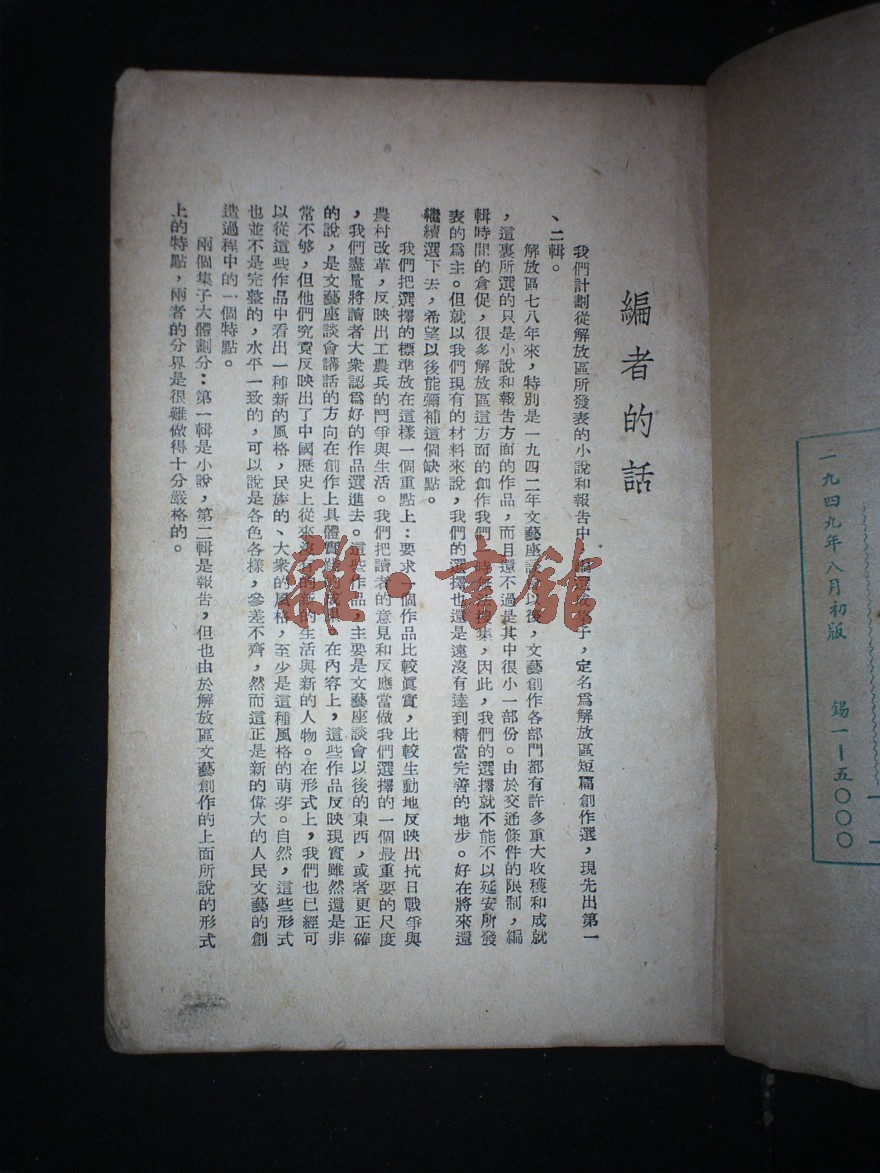 編者的話
我們計劃從解放區所發表的小說和報告中
子，定名爲解放區短篇創作選，現先出第一
、二輯。
解放區七八年來，特別是一九四二年文藝座談會以後，文藝創作各部門都有許多重大收穫和成就
，這裏所選的只是小說和報告方面的作品，而且還不過是其中很小一部份。由於交通條件的限制，編
輯時間的倉促，很多解放區這方面的創作我們一時無法搜集，因此，我們的選擇就不能不以延安所發
表的爲主。但就以我們現有的材料來說，我們的選擇也還是遠沒有達到精當完善的地步。好在將來還
繼續選下去，希望以後能彌補這個缺點。
我們把選擇的標準放在這樣一個重點上：要求一個作品比較眞實，比較生動地反映出抗日戰爭與
農村改革，反映出工農兵的鬥爭與生活。我們把讀者的意見和反應當做我們選擇的一個最重要的尺度
，我們盡量將讀者大衆認爲好的作品選進去。這些作品，主要是文藝座談會以後的東西，或者更正確
的說，是文藝座談會講話的方向在創作上具體實踐的成果。在內容上，這些作品反映現實雖然還是非
常不够，但他們究竟反映出了中國歷史上從來沒有的新的生活與新的人物。在形式上，我們也已經可
以從這些作品中看出一種新的風格，民族的、大衆的風格，至少是這種風格的萌芽。自然，這些形式
也並不是完整的，水平一致的，可以說是各色各樣，參差不齊，然而這正是新的偉大的人民文藝的創
造過程中的一個特點。
兩個集子大體劃分：第一輯是小說，第二輯是報告，但也由於解放區文藝創作的上面所說的形式
上的特點，兩者的分界是很難做得十分嚴格的。
雜·書館
一九四九年八月初版 錫一—五〇〇〇